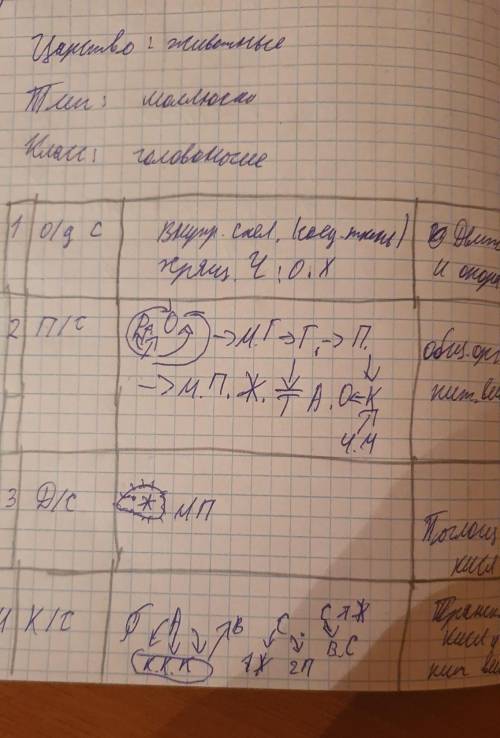 Царство: животные
Тип: моллюски
Класс: головоногие
1 О/д С Внутр. скел. (соед. ткань)
Хрящ. Ч : О. Х
и опора
2 П/С Р. О → М. Г → Г. → П.
→ М. П. Ж. А. О ← К
Ч. М
общ. орг
пит. ве
3 Д/С Ж М П
Поглощ
кисл
Х/С Г А В С
К. К. К 1Ж 2П В. С
Транс
кисл
пит ве